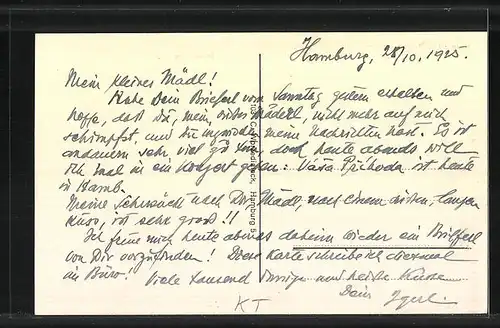 Hamburg, 28/10. 1925.
Mein kleines Mädl!
Habe Dein Brieferl vom Sonntag gestern erhalten und
hoffe, daß Du, mein süßes Mäderl, nicht mehr auf mich
schimpfst, und Du inzwischen meine Nachrichten hast. Es ist
andauernd sehr viel zu tun, doch heute abends will
ich mal in ein Konzert gehen: Váša Příhoda ist heute
in Hamb.
Meine Sehnsucht nach Dir, Mädl, nach einem süßen, langen
Kuss, ist sehr groß!!
Ich freue mich heute abends daheim wieder ein Brieferl
von Dir vorzufinden! Diese Karte schreibe ich diesmal
im Büro! Viele tausend innige und heiße Küsse
Dein
KT
Hamburg 5